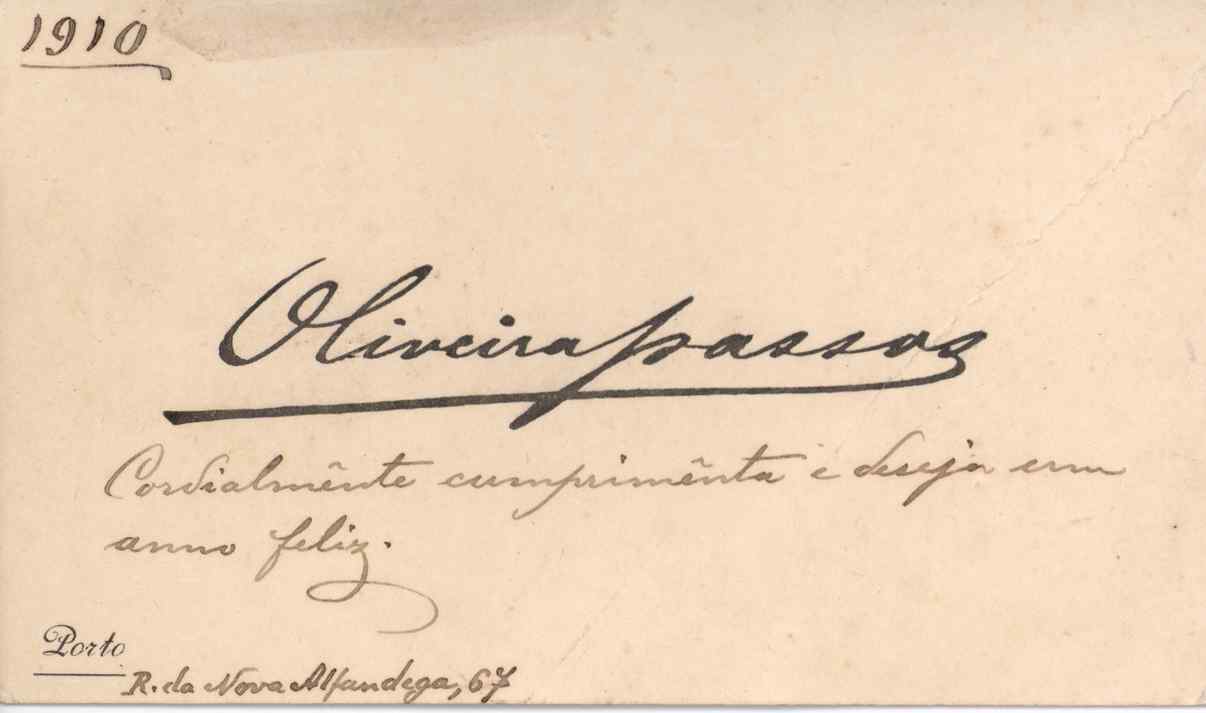 1910
Oliveira passos
Cordialmênte cumprimênta e deseja um
anno feliz.
Porto
R. da Nova Alfandega, 67